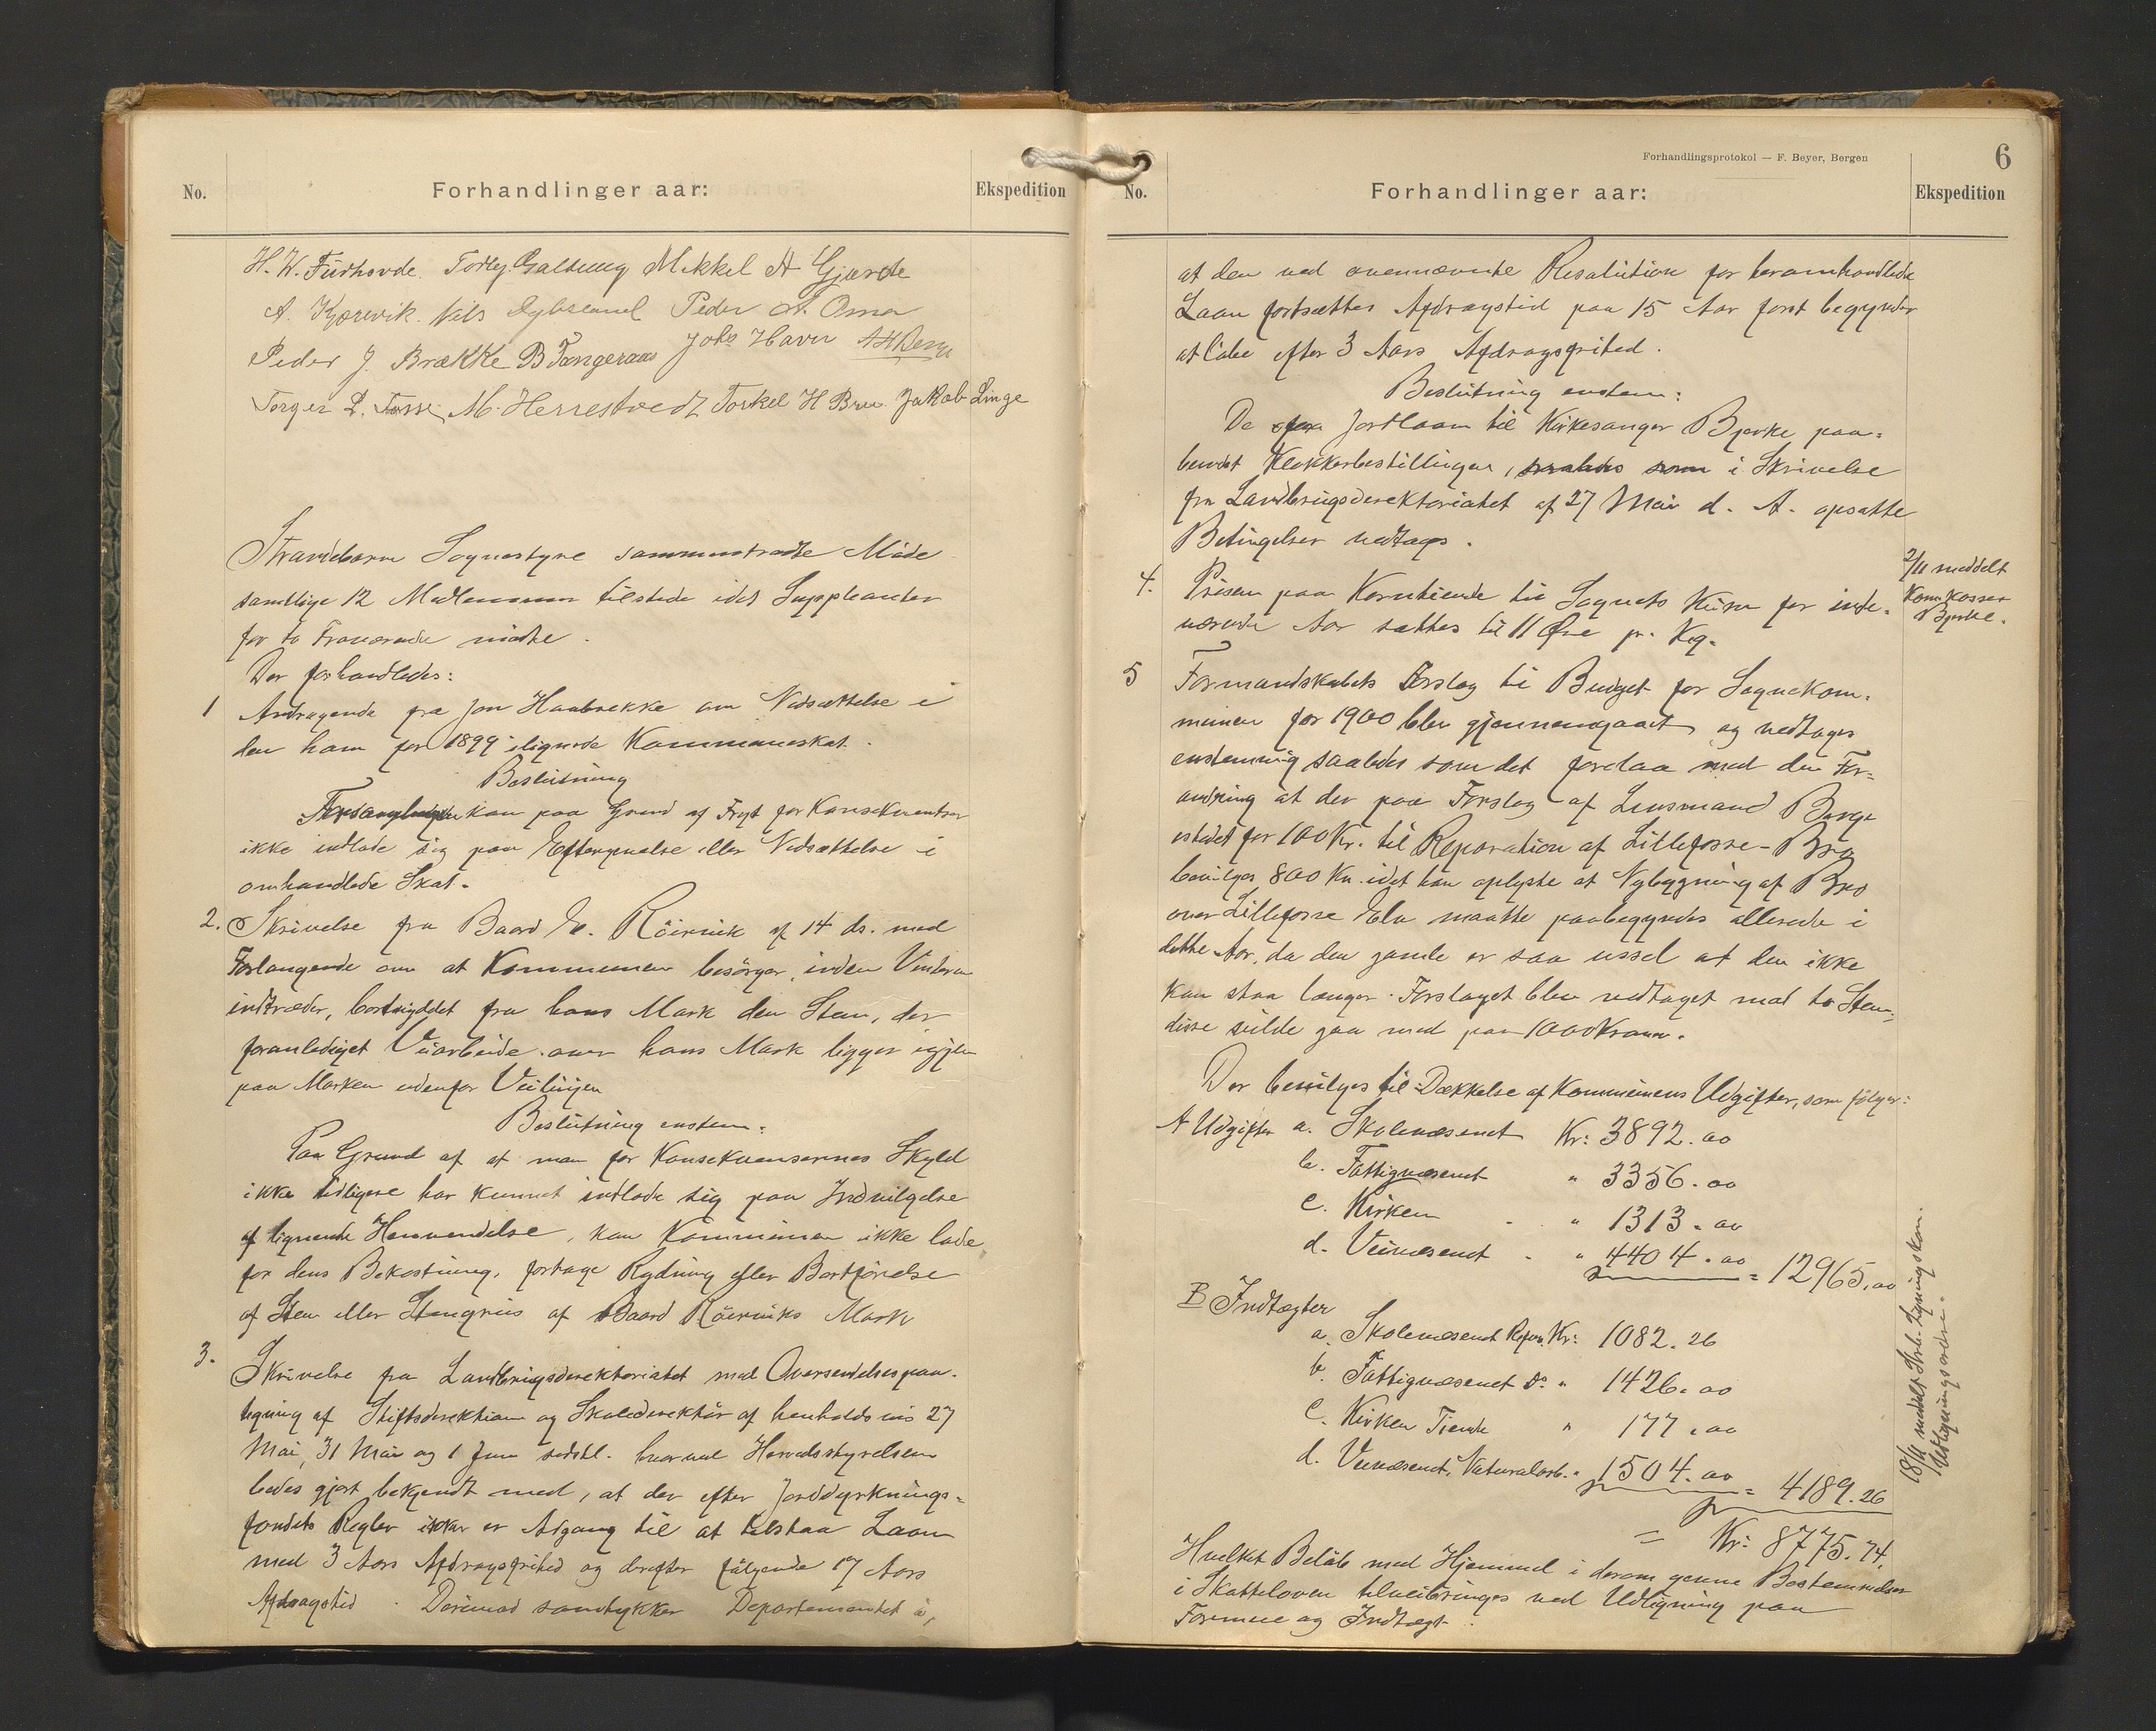 No.
Forhandlinger aar:
Ekspedition
H. W. Fürhovde. Torleg Galtung Mikkel A Gjærde
A. Kjærevik. Nils Peder A. Oma
Peder J. Brække B Tangeraas Johs Haver
Torger L. Fosse, M. Herrestvedt Torkel H Bru. Jakob Linge
Strandebarm Sognestyre sammentraadte Møde
samtlige 12 Medlemmer tilstede idet Suppleanter
for to Fraværende mødte.
Der forhandledes:
1 Andragende fra Jon Haabrekke om Nedsættelse i
den ham for 1899 ilignede Kommuneskat.
Beslutning
kan paa Grund af Frygt for Konsekventser
ikke indlade sig paa Eftergivelse eller Nedsættelse i
omhandlede Skat.
2. Skrivelse fra Baard E. Röirvik af 14 ds. med
Forlangende om at Kommunen besörger, inden Vinteren
indtræder, bortryddet fra hans Mark den Sten, der
foranlediget Veiarbeide over hans Mark ligger igjen
paa Marken udenfor Veilinjen
Beslutning enstem:
Paa Grund af at man for Konsekvensernes Skyld
ikke tidligere har kunnet indlade sig paa Indvilgelse
af lignende Henvendelse, kan Kommunen ikke lade
for dens Bekostning, foretage Rydning eller Bortförelse
af Sten eller Stengrus af Baard Röirviks Mark
3. Skrivelse fra Landbrugsdirektoriatet med Oversendelsespaa-
tegning af Stiftsdirektion og Skoledirektör af henholdsvis 27
Mai, 31 Mai og 1 Juni sidstl. hvorved Herredsstyrelsen
bedes gjort bekjendt med, at der efter Jorddyrknings-
fondets Regler ikke er Adgang til at tilstaa Laan
med 3 Aars Afdragsfrihed og derefter fölgende 17 Aars
Afdragstid. Derimod samtykker Departementet i,
Forhandlingsprotokol — F. Beyer, Bergen
6
No.
Forhandlinger aar:
Ekspedition
at den ved ovennævnte Resolution for heromhandlede
Laan fortsættes Afdragstid paa 15 Aar först begynder
at löbe efter 3 Aars Afdragsfrihed.
Beslutning enstem:
De for Jordlaan til Kirkesanger Bjerke paa-
beroet Klokkerbestillingen, i Skrivelse
fra Landbrugsdirektoriatet af 27 Mai d. A. opsatte
Betingelser vedtages.
4. Prisen paa Korntiende til Sognets Kirke for inde-
værende Aar sættes til 11 Øre pr. Kg.
2/11 meddelt
Kom.kasser
Bjerke.
5 Formandskabets Forslag til Budget for Sognekom-
munen for 1900 blev gjennemgaaet og vedtages
enstemmig saaledes som det forelaa med den For-
andring at der paa Forslag af Lensmand Berge
istedet for 100 Kr. til Reparation af Lillefosse-Bro
bevilges 800 Kr. idet han oplyste at Nybygning af Bro
over Lillefosse Elv maatte paabegyndes allerede i
dette Aar, da den gamle er saa ussel at den ikke
kan staa længer. Forslaget blev vedtaget mod to Stem-,
disse vilde gaa med paa 1000 Kroner.
Der bevilges til Dækkelse af Kommunens Udgifter, som fölger:
A Udgifter a. Skolevæsenet Kr: 3892.00
b. Fattigvæsenet " 3356.00
c. Kirken " 1313.00
d. Veivæsenet " 4404.00 = 12965.00
B Indtægter
a. Skolevæsenet Refu. Kr: 1082.26
b. Fattigvæsenet Do " 1426.00
c. Kirken Tiende " 177.00
d. Veivæsenet, Naturalarb. " 1504.00 = 4189.26
= Kr: 8775.74.
Hvilket Belöb med Hjemmel i derom givne Bestemmelser
i Skatteloven tilveiebringes ved Udligning paa
Formue og Indtægt.
18/11 meddelt Strb. Ligningskom.
Udligningsordre.